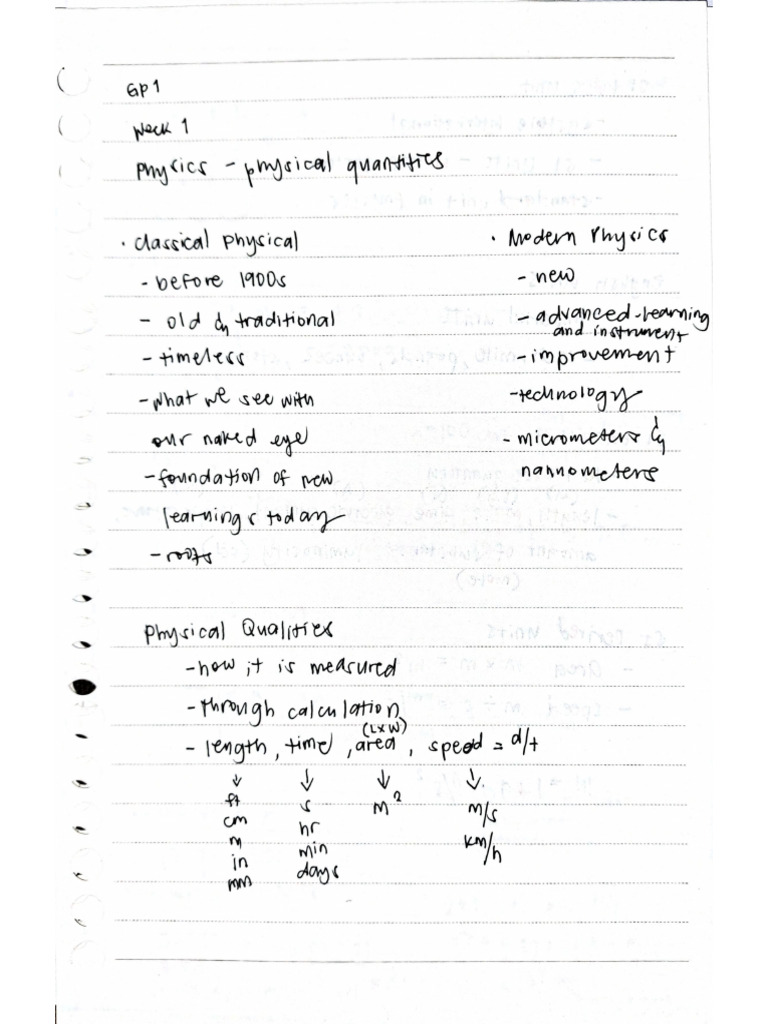 GP1
Week 1
Physics - physical quantities
· Classical Physical
- before 1900s
- old & traditional
- timeless
- what we see with
our naked eye
- foundation of new
learnings today
- roots
· Modern Physics
- new
- advanced-learning
and instrument
- improvement
- technology
- micrometers &
nannometers
Physical Qualities
- how it is measured
- through calculation
(L×W)
- length, time, area, speed = d/t
↓ ↓ ↓ ↓
ft s m² m/s
cm hr km/h
m min
in days
mm